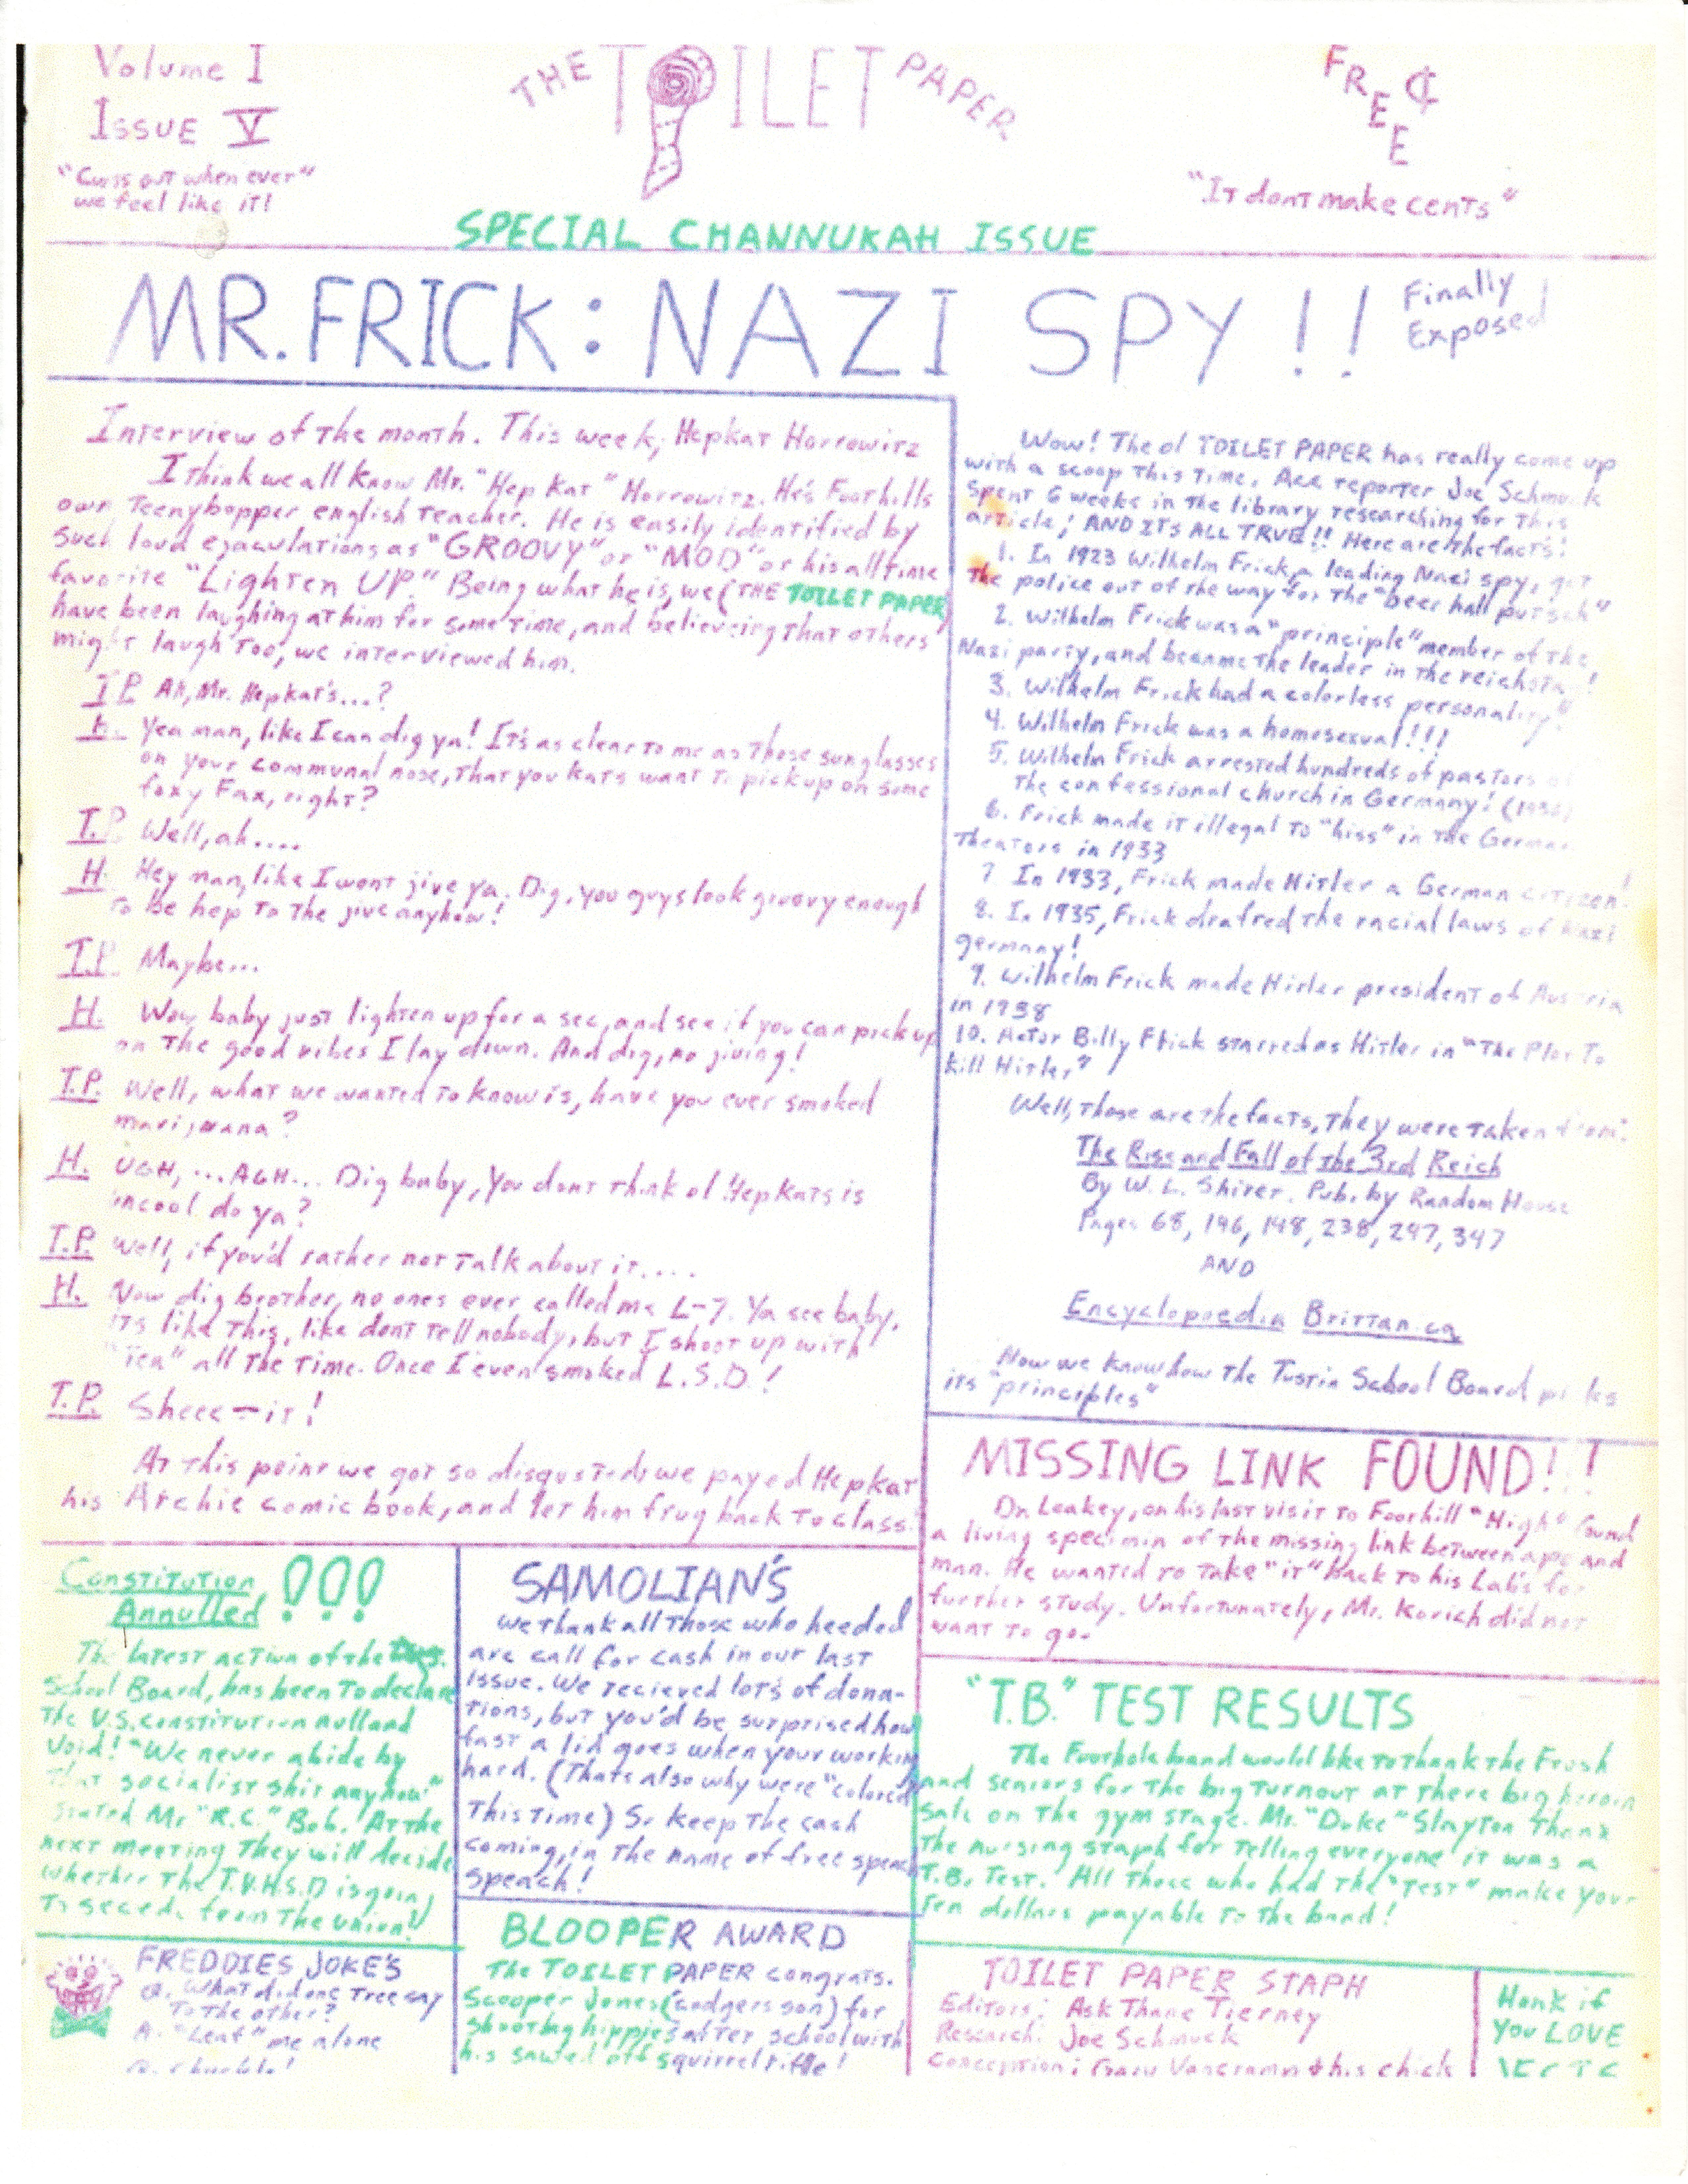 Volume I
Issue V
"Cums out when ever"
we feel like it!
THE TOILET PAPER
FREE ¢
"It dont make cents"
SPECIAL CHANNUKAH ISSUE
MR. FRICK: NAZI SPY!!
Finally
Exposed
Interview of the month. This week, Hepkat Horrowitz
I think we all know Mr. "Hep Kat" Horrowitz. He's Foothills
own Teenybopper english teacher. He is easily identified by
such loud ejaculations as "GROOVY" or "MOD" or his all time
favorite "Lighten UP." Being what he is, we (THE TOILET PAPER)
have been laughing at him for some time, and believeing that others
might laugh too, we interviewed him.
T.P. Ah, Mr. Hepkat's...?
H. Yea man, like I can dig ya! It's as clear to me as those sunglasses
on your communal nose, that you kats want to pick up on some
foxy Fax, right?
T.P. Well, ah....
H. Hey man, like I wont jive ya. Dig, you guys look groovy enough
to be hep to the jive anyhow!
T.P. Maybe...
H. Wow baby just lighten up for a sec, and see if you can pick up
on the good vibes I lay down. And dig, no jiving!
T.P. Well, what we wanted to know is, have you ever smoked
marijwana?
H. UGH,...AGH... Dig baby, you dont think ol Hepkats is
uncool do ya?
T.P. Well, if you'd rather not talk about it....
H. Now dig brother, no ones ever called me L-7. Ya see baby,
its like this, like dont tell nobody, but I shoot up with
"Tea" all the time. Once I even smoked L.S.D.!
T.P. Sheee-it!
At this point we got so disgusted we payed Hepkat
his Archie comic book, and let him frug back to class.
Wow! The ol TOILET PAPER has really come up
with a scoop this time. Ace reporter Joe Schmuck
spent 6 weeks in the library researching for this
article; AND ITS ALL TRUE!! Here are the facts:
1. In 1923 Wilhelm Frick, a leading Nazi spy, got
the police out of the way for the "beer hall putsch"
2. Wilhelm Frick was a "principle" member of the
Nazi party, and became the leader in the reichstag!
3. Wilhelm Frick had a colorless personality"
4. Wilhelm Frick was a homosexual!!!
5. Wilhelm Frick arrested hundreds of pastors of
the confessional church in Germany!
6. Frick made it illegal to "hiss" in the German
Theaters in 1933
7. In 1933, Frick made Hitler a German citizen!
8. In 1935, Frick drafted the racial laws of Nazi
germany!
9. Wilhelm Frick made Hitler president of Austria
in 1938
10. Actor Billy Frick starred as Hitler in "The Plot To
kill Hitler"
Well, those are the facts, they were taken from:
The Rise and Fall of the 3rd Reich
By W. L. Shirer. Pub. by Random House
Pages 68, 146, 148, 238, 247, 347
AND
Encyclopoedia Brittanica
Now we know how the Tustin School Board picks
its "principles"
MISSING LINK FOUND!!!
Dr. Leakey, on his last visit to Foothill "High" found
a living specimin of the missing link between ape and
man. He wanted to take "it" back to his Lab's for
further study. Unfortunately, Mr. Korich did not
want to go.
Constitution !!!
Annulled
The latest action of the
School Board, has been to declare
the U.S. constitution null and
void! "We never abide by
that socialist shit anyhow"
stated Mr. "R.C." Bob. At the
next meeting they will decide
whether the T.U.H.S.D is going
to secede from the Union!
SAMOLIAN'S
We thank all those who heeded
are call for cash in our last
issue. We recieved lots of dona-
tions, but you'd be surprised how
fast a lid goes when your working
hard. (Thats also why were "colored"
this time) So keep the cash
coming, in the name of free speach
speach!
"T.B." TEST RESULTS
The Foothole band would like to thank the Frosh
and seniors for the big turnout at there big heroin
sale on the gym stage. Mr. "Duke" Slayton thanx
the nursing staph for telling everyone it was a
T.B. Test. All those who had the "test" make your
ten dollars payable to the band!
FREDDIES JOKE'S
Q. What did one tree say
to the other?
A. "Leaf" me alone
BLOOPER AWARD
The TOILET PAPER congrats.
Scooper Jones (codgers son) for
shooting hippies after school with
his sawed off squirrel rifle!
TOILET PAPER STAPH
Editors: Ask Thane Tierney
Research: Joe Schmuck
Conception: Gary & his chick
Honk if
you LOVE